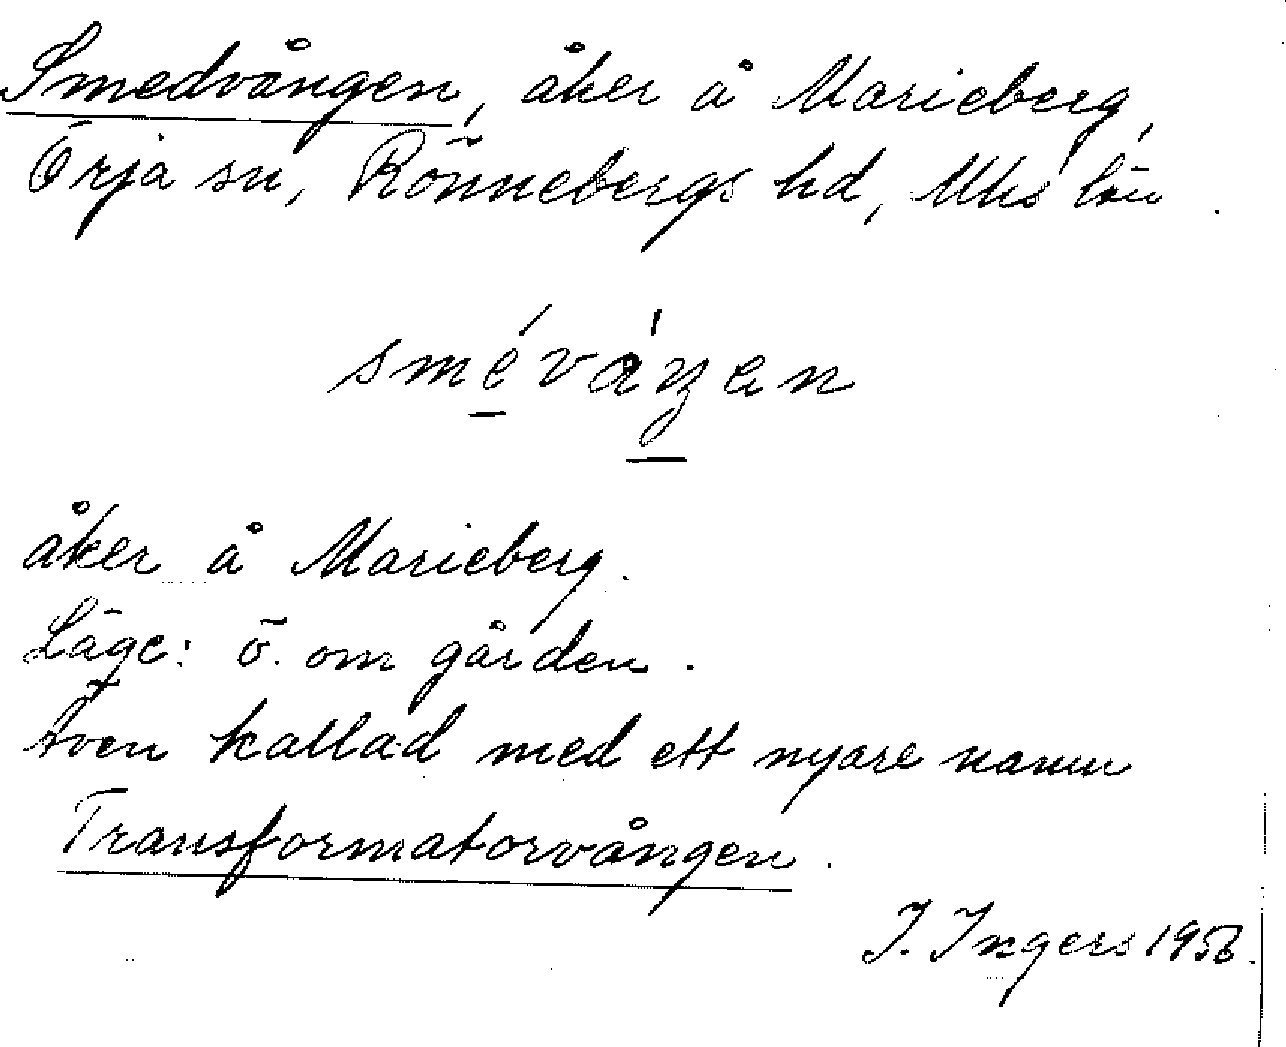 Smedvången, åker å Marieberg,
Örja sn, Rönnebergs hd, Mhs län.
åker å Marieberg.
Läge: ö. om gården.
Även kallad med ett nyare namn
Transformatorvången.
I. Ingers